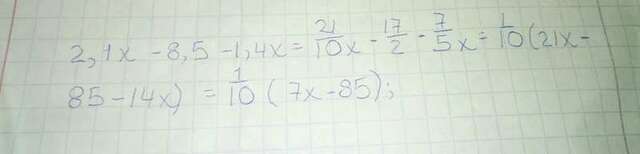 2,1x - 8,5 - 1,4x = 21/10 x - 17/2 - 7/5 x = 1/10 (21x -
85 - 14x) = 1/10 (7x - 85);